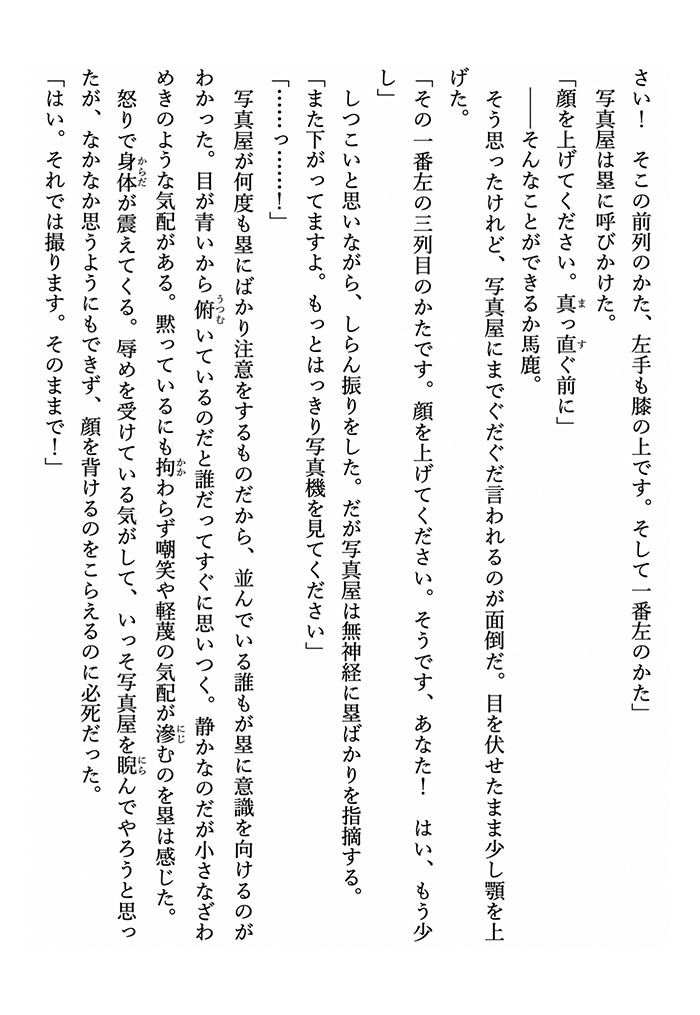 さい！　そこの前列のかた、左手も膝の上です。そして一番左のかた」
　写真屋は塁に呼びかけた。
「顔を上げてください。真っ直ぐ前に」
　――そんなことができるか馬鹿。
　そう思ったけれど、写真屋にまでぐだぐだ言われるのが面倒だ。目を伏せたまま少し顎を上
げた。
「その一番左の三列目のかたです。顔を上げてください。そうです、あなた！　はい、もう少
し」
　しつこいと思いながら、しらん振りをした。だが写真屋は無神経に塁ばかりを指摘する。
「また下がってますよ。もっとはっきり写真機を見てください」
「……っ……！」
　写真屋が何度も塁にばかり注意をするものだから、並んでいる誰もが塁に意識を向けるのが
わかった。目が青いから俯いているのだと誰だってすぐに思いつく。静かなのだが小さなざわ
めきのような気配がある。黙っているにも拘わらず嘲笑や軽蔑の気配が滲むのを塁は感じた。
　怒りで身体が震えてくる。辱めを受けている気がして、いっそ写真屋を睨んでやろうと思っ
たが、なかなか思うようにもできず、顔を背けるのをこらえるのに必死だった。
「はい。それでは撮ります。そのままで！」